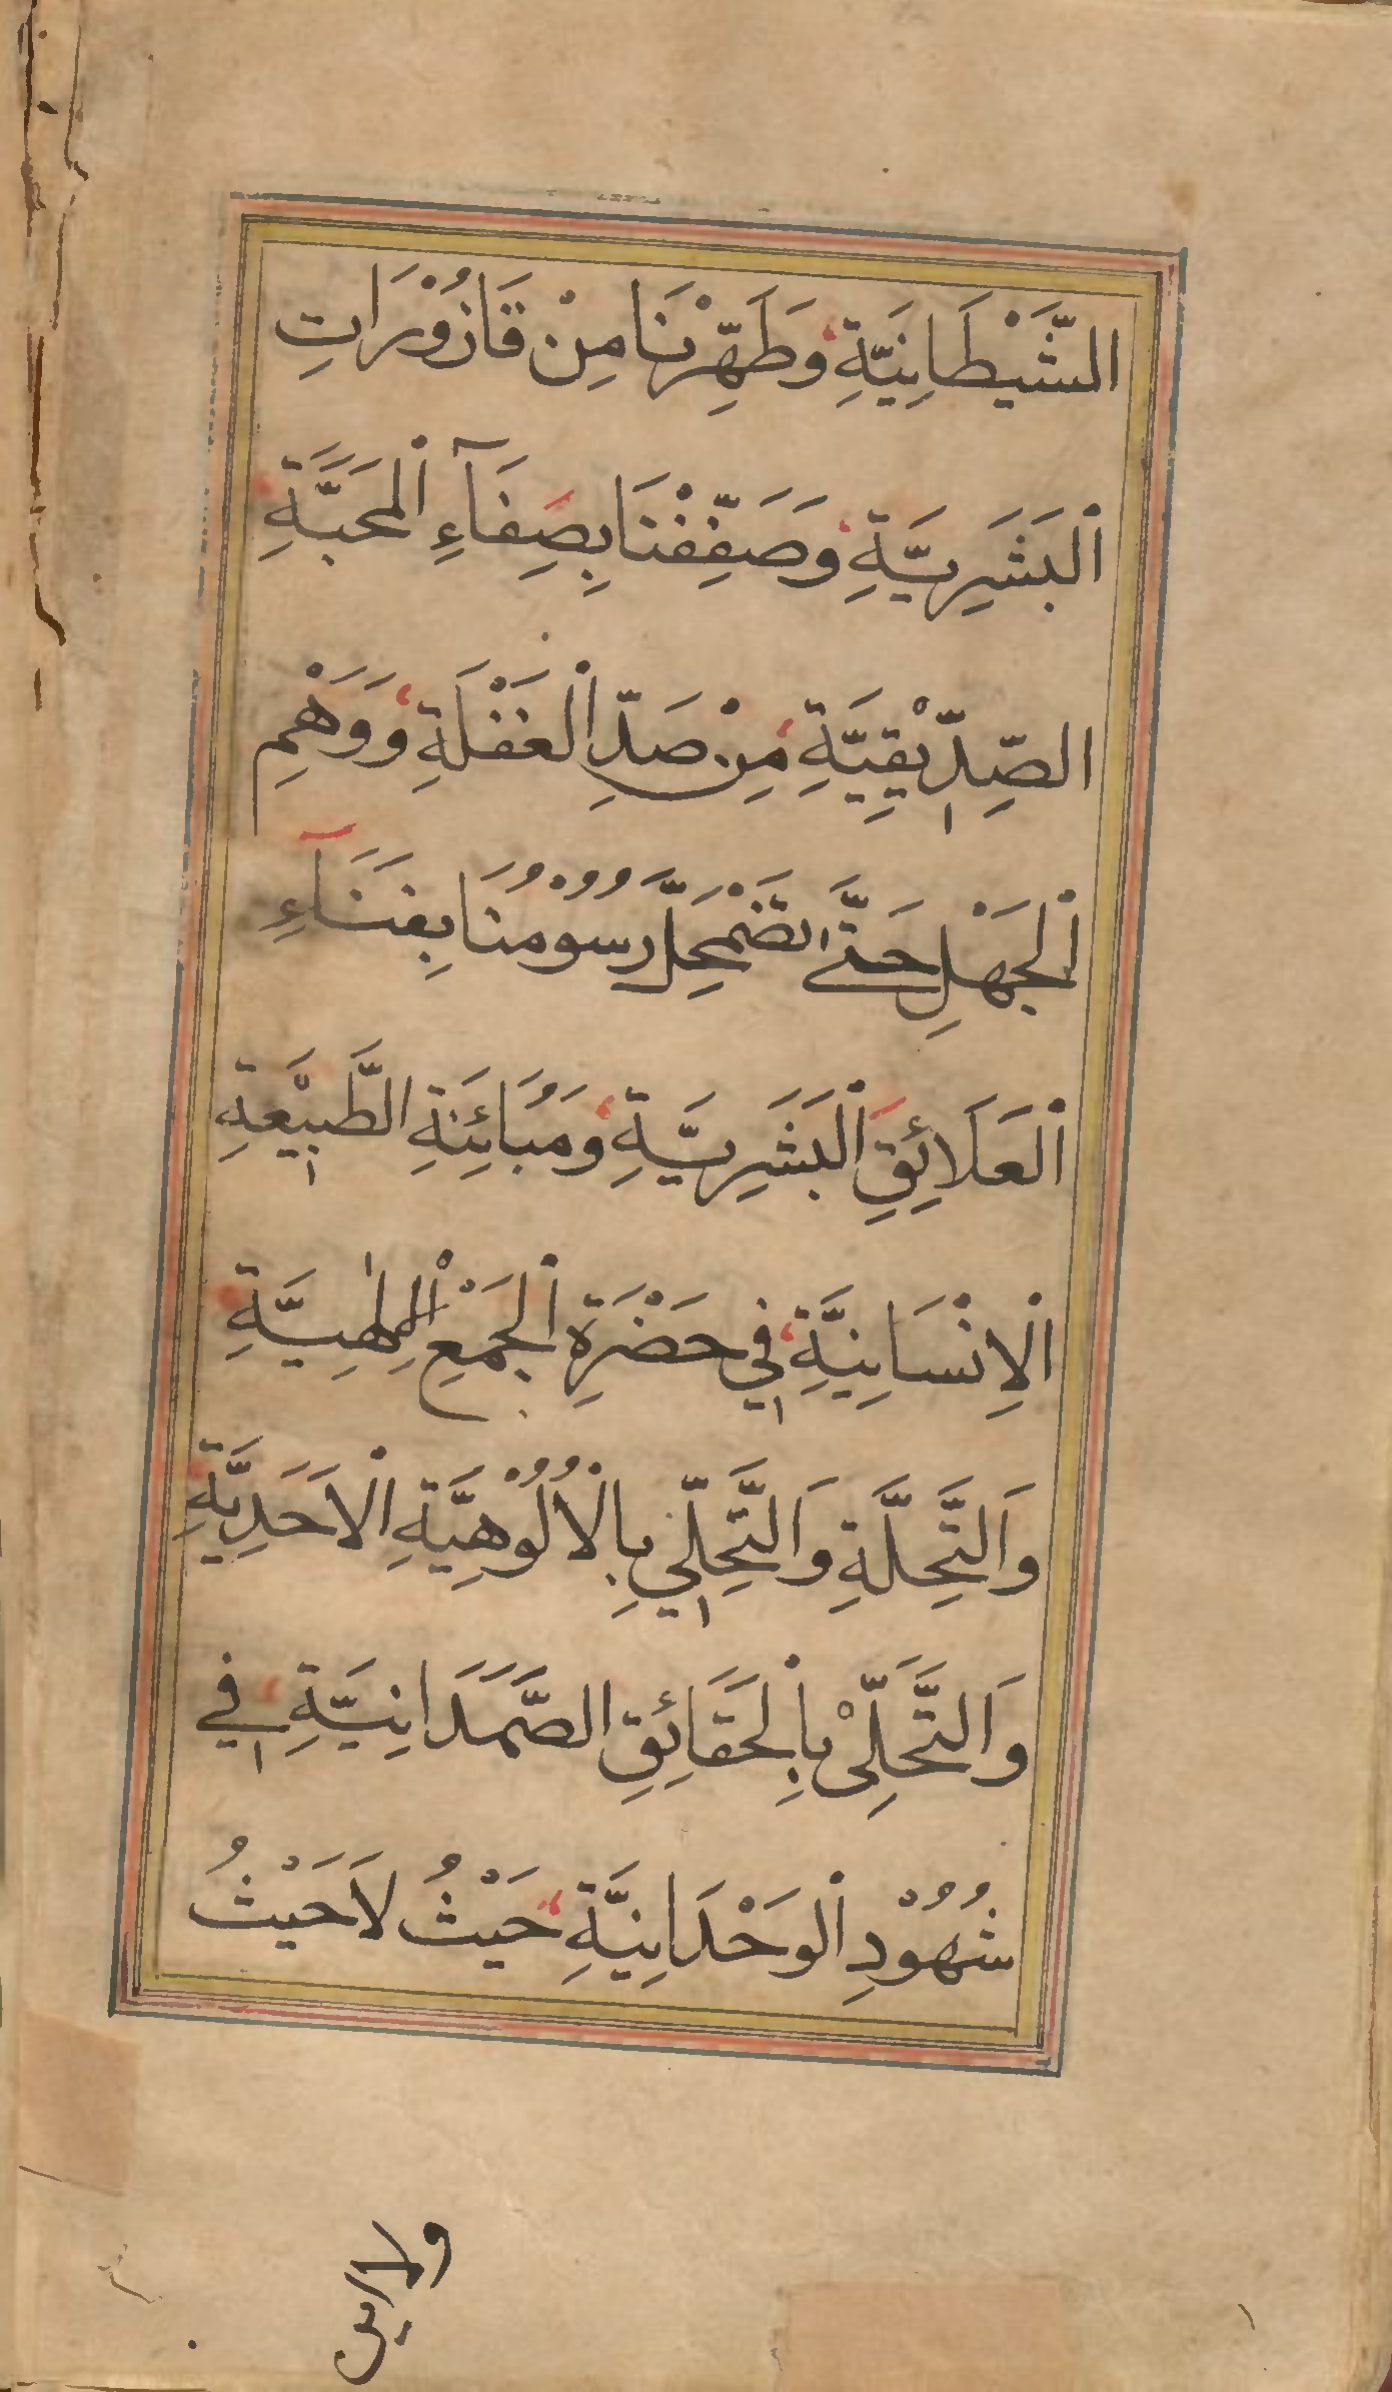 الشَّيْطَانِيَّةِ وَطَهِّرْنَا مِنْ قَاذُوْرَاتِ
اَلْبَشَرِيَّةِ وَصَفِّفْنَا بِصِفَآءِ الْمَحَبَّةِ
الصِّدِّيْقِيَّةِ مِنْ صَدِّ الْغَفْلَةِ وَوَهْمِ
الْجَهْلِ حَتَّى تَضْمَحِلَّ رُسُوْمُنَا بِفَنَآءِ
الْعَلَائِقِ الْبَشَرِيَّةِ وَمُبَائَنَةِ الطَّبِيْعَةِ
الْاِنْسَانِيَّةِ فِي حَضْرَةِ الْجَمْعِ
وَالتَّحِلَّةِ وَالتَّحِلِّي بِالْاُلُوْهِيَّةِ الْاَحَدِيَّةِ
وَالتَّجَلِّيْ بِالْحَقَائِقِ الصَّمَدَانِيَّةِ فِي
شُهُوْدِ الْوَحْدَانِيَّةِ حَيْثُ لَا حَيْثُ
ولا اين